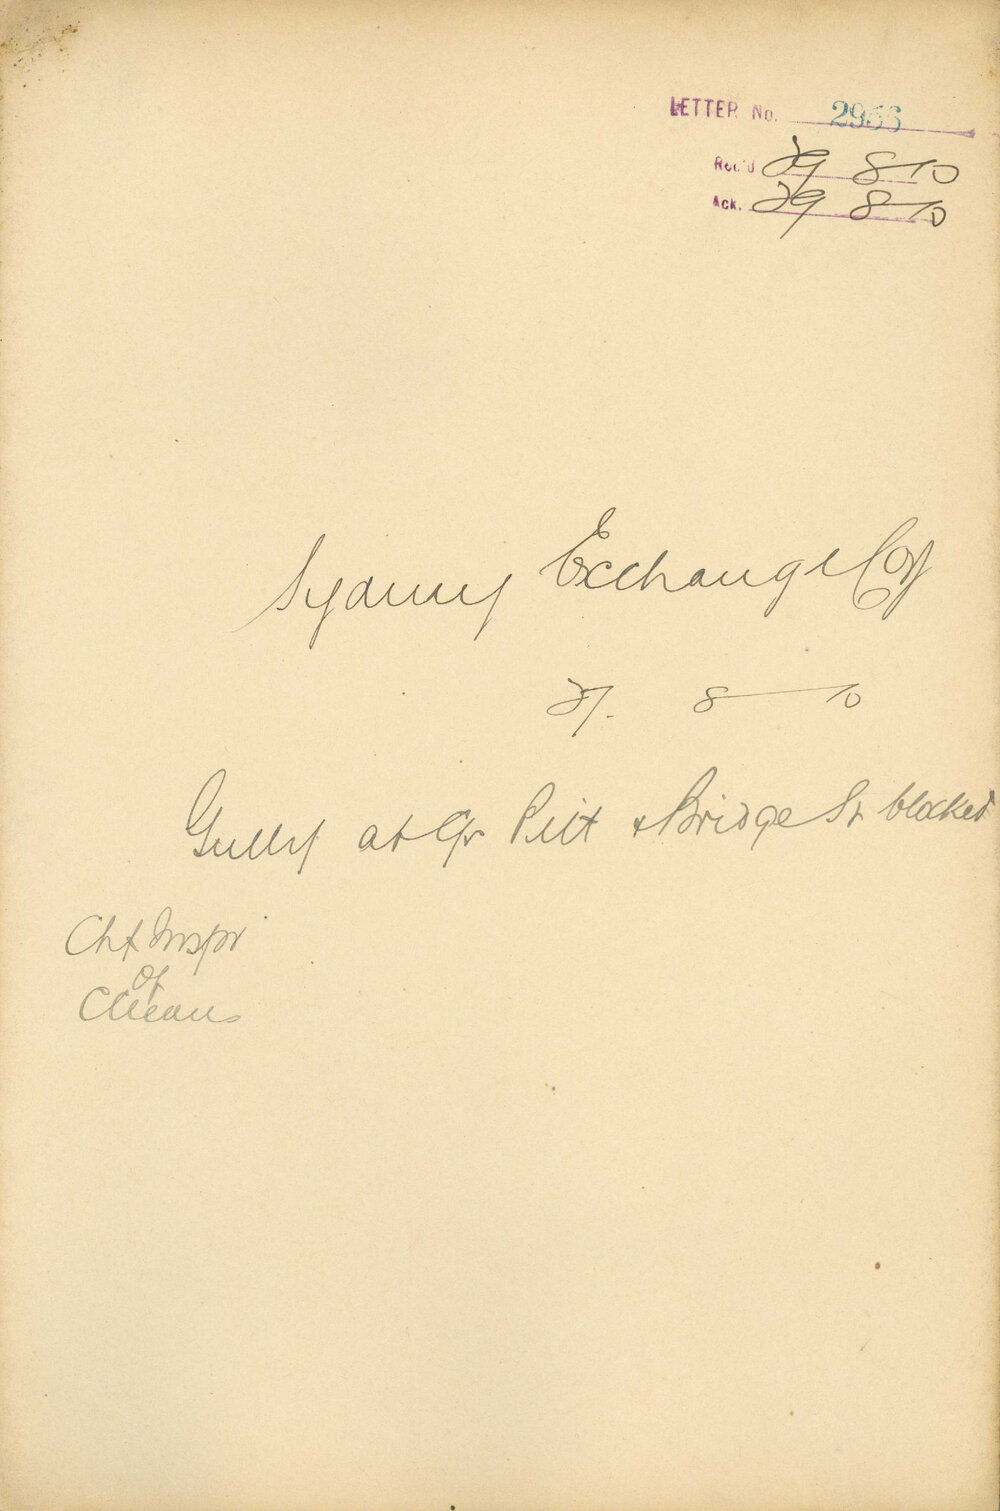 LETTER No. 2966
Rec'd 29 8 10
Ack. 29 8 10
Sydney Exchange Coy
27. 8 10
Gully at Cr Pitt & Bridge St blocked
Chf Inspr
of
Cleans